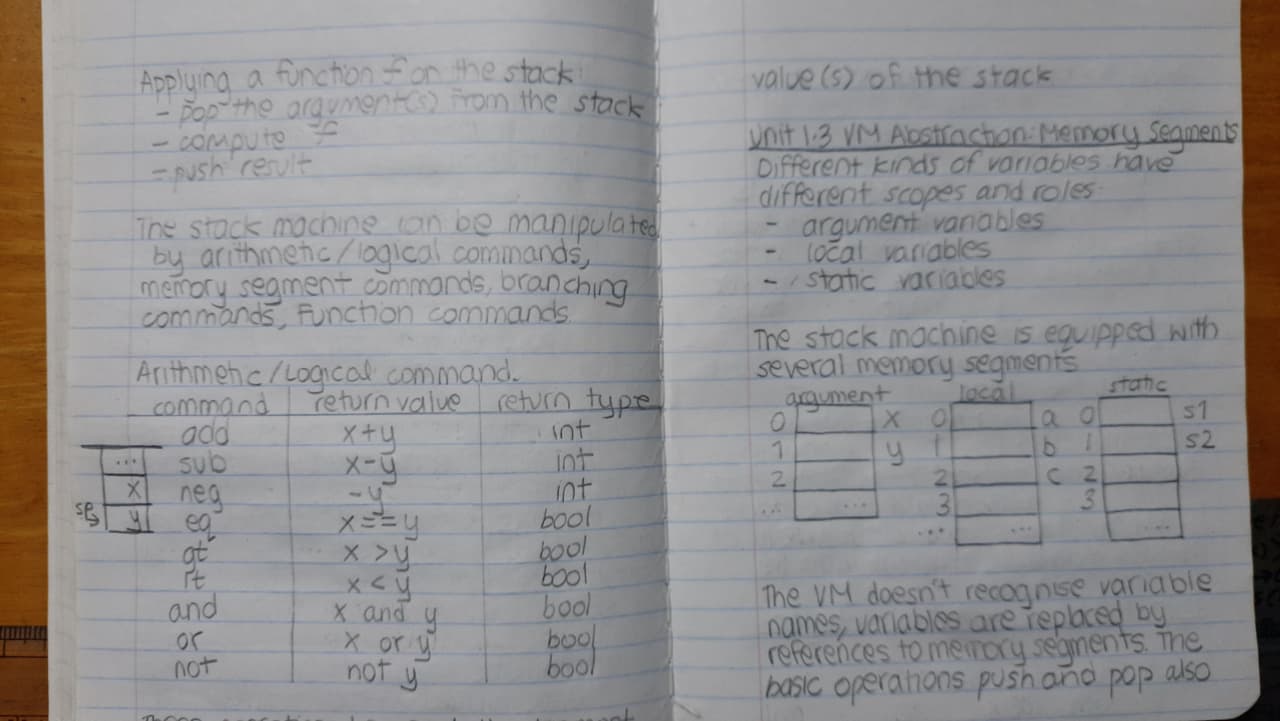 Applying a function f on the stack:
- pop the argument(s) from the stack
- compute f
- push result
The stack machine can be manipulated
by arithmetic/logical commands,
memory segment commands, branching
commands, Function commands.
Arithmetic/Logical command.
command return value return type
add x+y int
... sub x-y int
x neg -y int
sp y eq x==y bool
gt x >y bool
lt x<y bool
and x and y bool
or x or y bool
not not y bool
value(s) of the stack
Unit 1.3 VM Abstraction: Memory Segments
Different kinds of variables have
different scopes and roles:
- argument variables
- local variables
- static variables
The stack machine is equipped with
several memory segments
argument local static
0 x 0 a 0 s1
1 y 1 b 1 s2
2 2 c 2
... ... 3 3
... ... ...
The VM doesn't recognise variable
names, variables are replaced by
references to memory segments. The
basic operations push and pop also